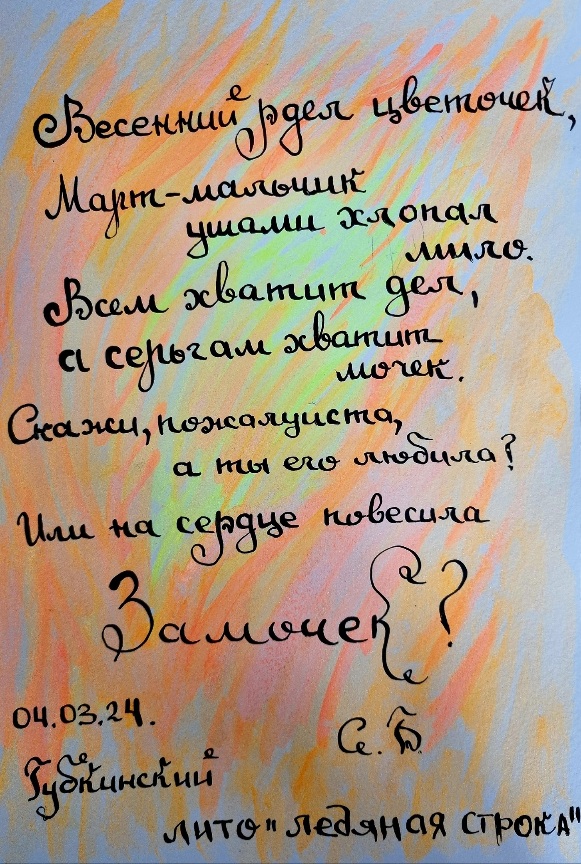 Весенний рдел цветочек,
Март-мальчик
ушами хлопал
мило.
Всем хватит дел,
а серьгам хватит
мочек.
Скажи, пожалуйста,
а ты его любила?
Или на сердце повесила
Замочек?
04.03.24.
С. Б.
Губкинский
лито "ледяная строка"